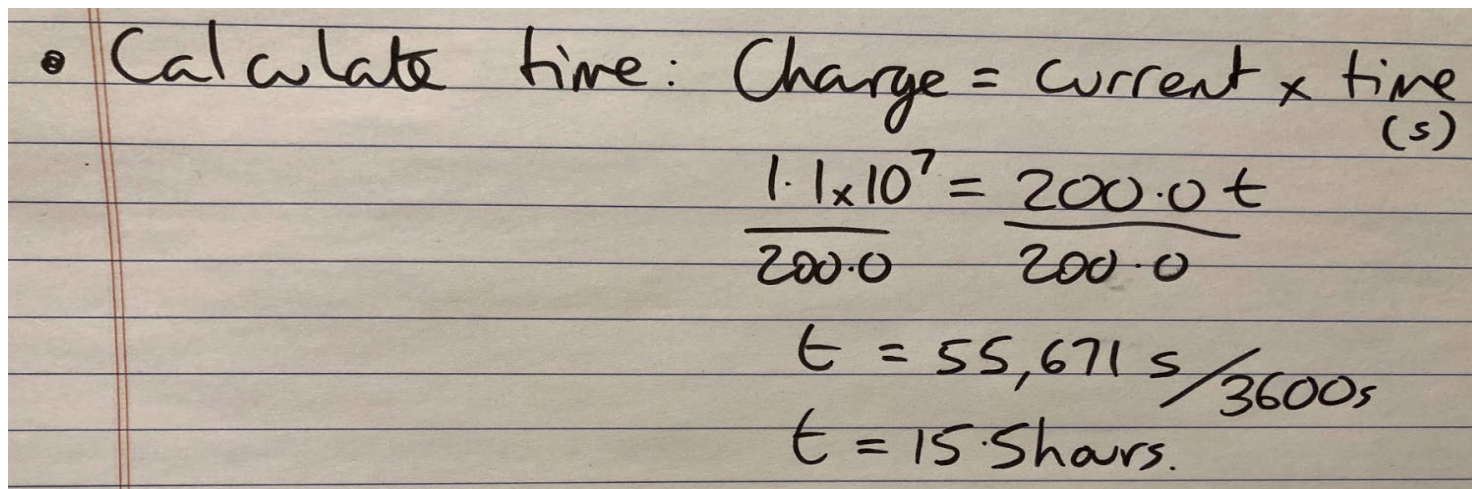 • Calculate time: Charge = current x time
(s)
1.1x10⁷ = 200.0 t
200.0 200.0
t = 55,671 s/3600s
t = 15.5hours.